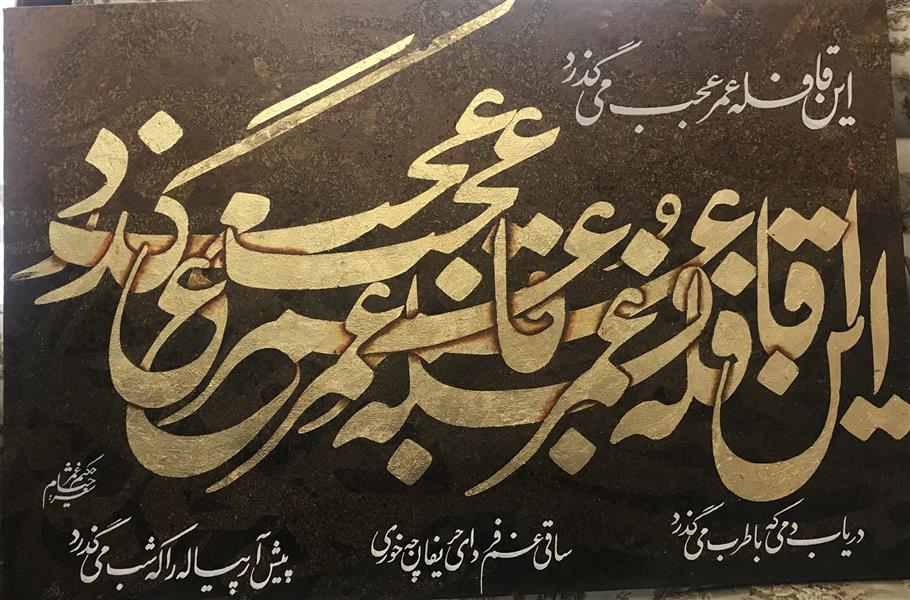 این قافله عمر عجب می گذرد
این قافله عمر عجب می گذرد
دریاب دمی که با طرب می گذرد
ساقی غم فردای حریفان چه خوری
پیش آر پیاله را که شب می گذرد
حکیم عمر خیام